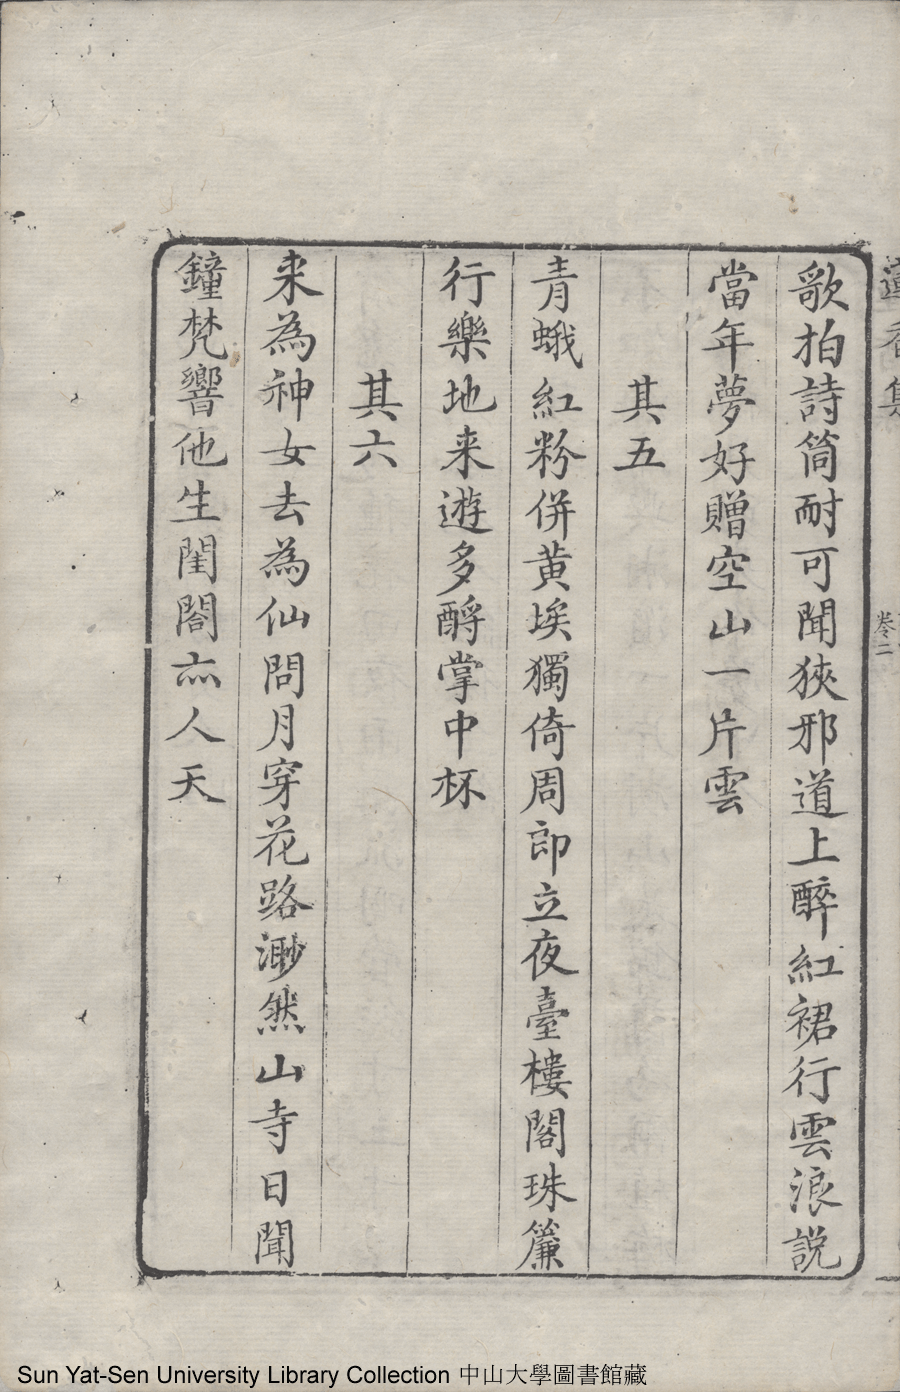 蓮香集
卷二
歌拍詩筒耐可聞狹邪道上醉紅裙行雲浪説
當年夢好贈空山一片雲
其五
青蛾紅粉併黄埃獨倚周郎立夜臺樓閣珠簾
行樂地来遊多酹掌中杯
其六
来為神女去為仙問月穿花路渺然山寺日聞
鐘梵響他生閨閤亦人天
Sun Yat-Sen University Library Collection 中山大學圖書館藏